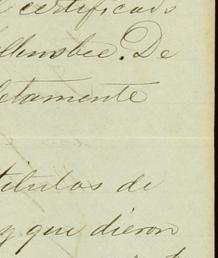 certificado
De
etamente
titulos de
y que dieron